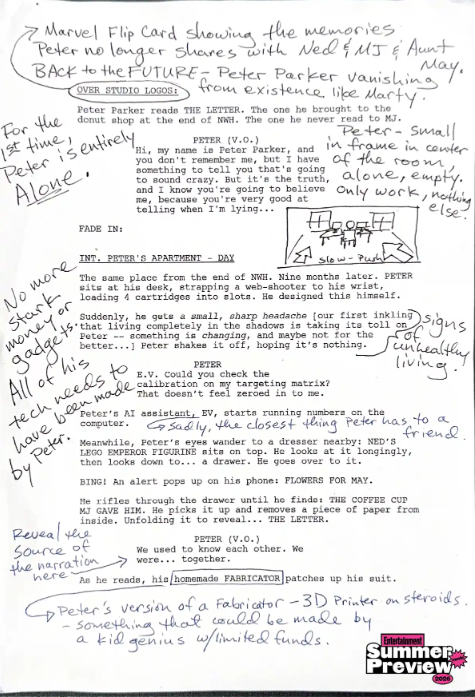 Marvel Flip Card showing the memories
Peter no longer shares with Ned & MJ & Aunt
May.
BACK to the FUTURE - Peter Parker vanishing
from existence like Marty.
OVER STUDIO LOGOS:
Peter Parker reads THE LETTER. The one he brought to the
donut shop at the end of NWH. The one he never read to MJ.
For the
1st time,
Peter is entirely
Alone.
PETER (V.O.)
Hi, my name is Peter Parker, and
you don't remember me, but I have
something to tell you that's going
to sound crazy. But it's the truth,
and I know you're going to believe
me, because you're very good at
telling when I'm lying...
Peter - small
in frame in center
of the room,
alone, empty.
only work, nothing
else.
FADE IN:
slow-Push
INT. PETER'S APARTMENT - DAY
The same place from the end of NWH. Nine months later. PETER
sits at his desk, strapping a web-shooter to his wrist,
loading 4 cartridges into slots. He designed this himself.
No more
stark
money or
gadgets.
All of his
tech needs to
have been made
by Peter.
Suddenly, he gets a small, sharp headache [our first inkling
that living completely in the shadows is taking its toll on
Peter -- something is changing, and maybe not for the
better...] Peter shakes it off, hoping it's nothing.
signs
of
unhealthy
living.
PETER
E.V. Could you check the
calibration on my targeting matrix?
That doesn't feel zeroed in to me.
Peter's AI assistant, EV, starts running numbers on the
computer.
Sadly, the closest thing Peter has to a
friend.
Meanwhile, Peter's eyes wander to a dresser nearby: NED'S
LEGO EMPEROR FIGURINE sits on top. He looks at it longingly,
then looks down to... a drawer. He goes over to it.
BING! An alert pops up on his phone: FLOWERS FOR MAY.
He rifles through the drawer until he finds: THE COFFEE CUP
MJ GAVE HIM. He picks it up and removes a piece of paper from
inside. Unfolding it to reveal... THE LETTER.
Reveal the
source of
the narration
here
PETER (V.O.)
We used to know each other. We
were... together.
As he reads, his homemade FABRICATOR patches up his suit.
Peter's version of a Fabricator - 3D Printer on steroids.
- something that could be made by
a kid genius w/limited funds.
Entertainment
Summer
Preview
2026